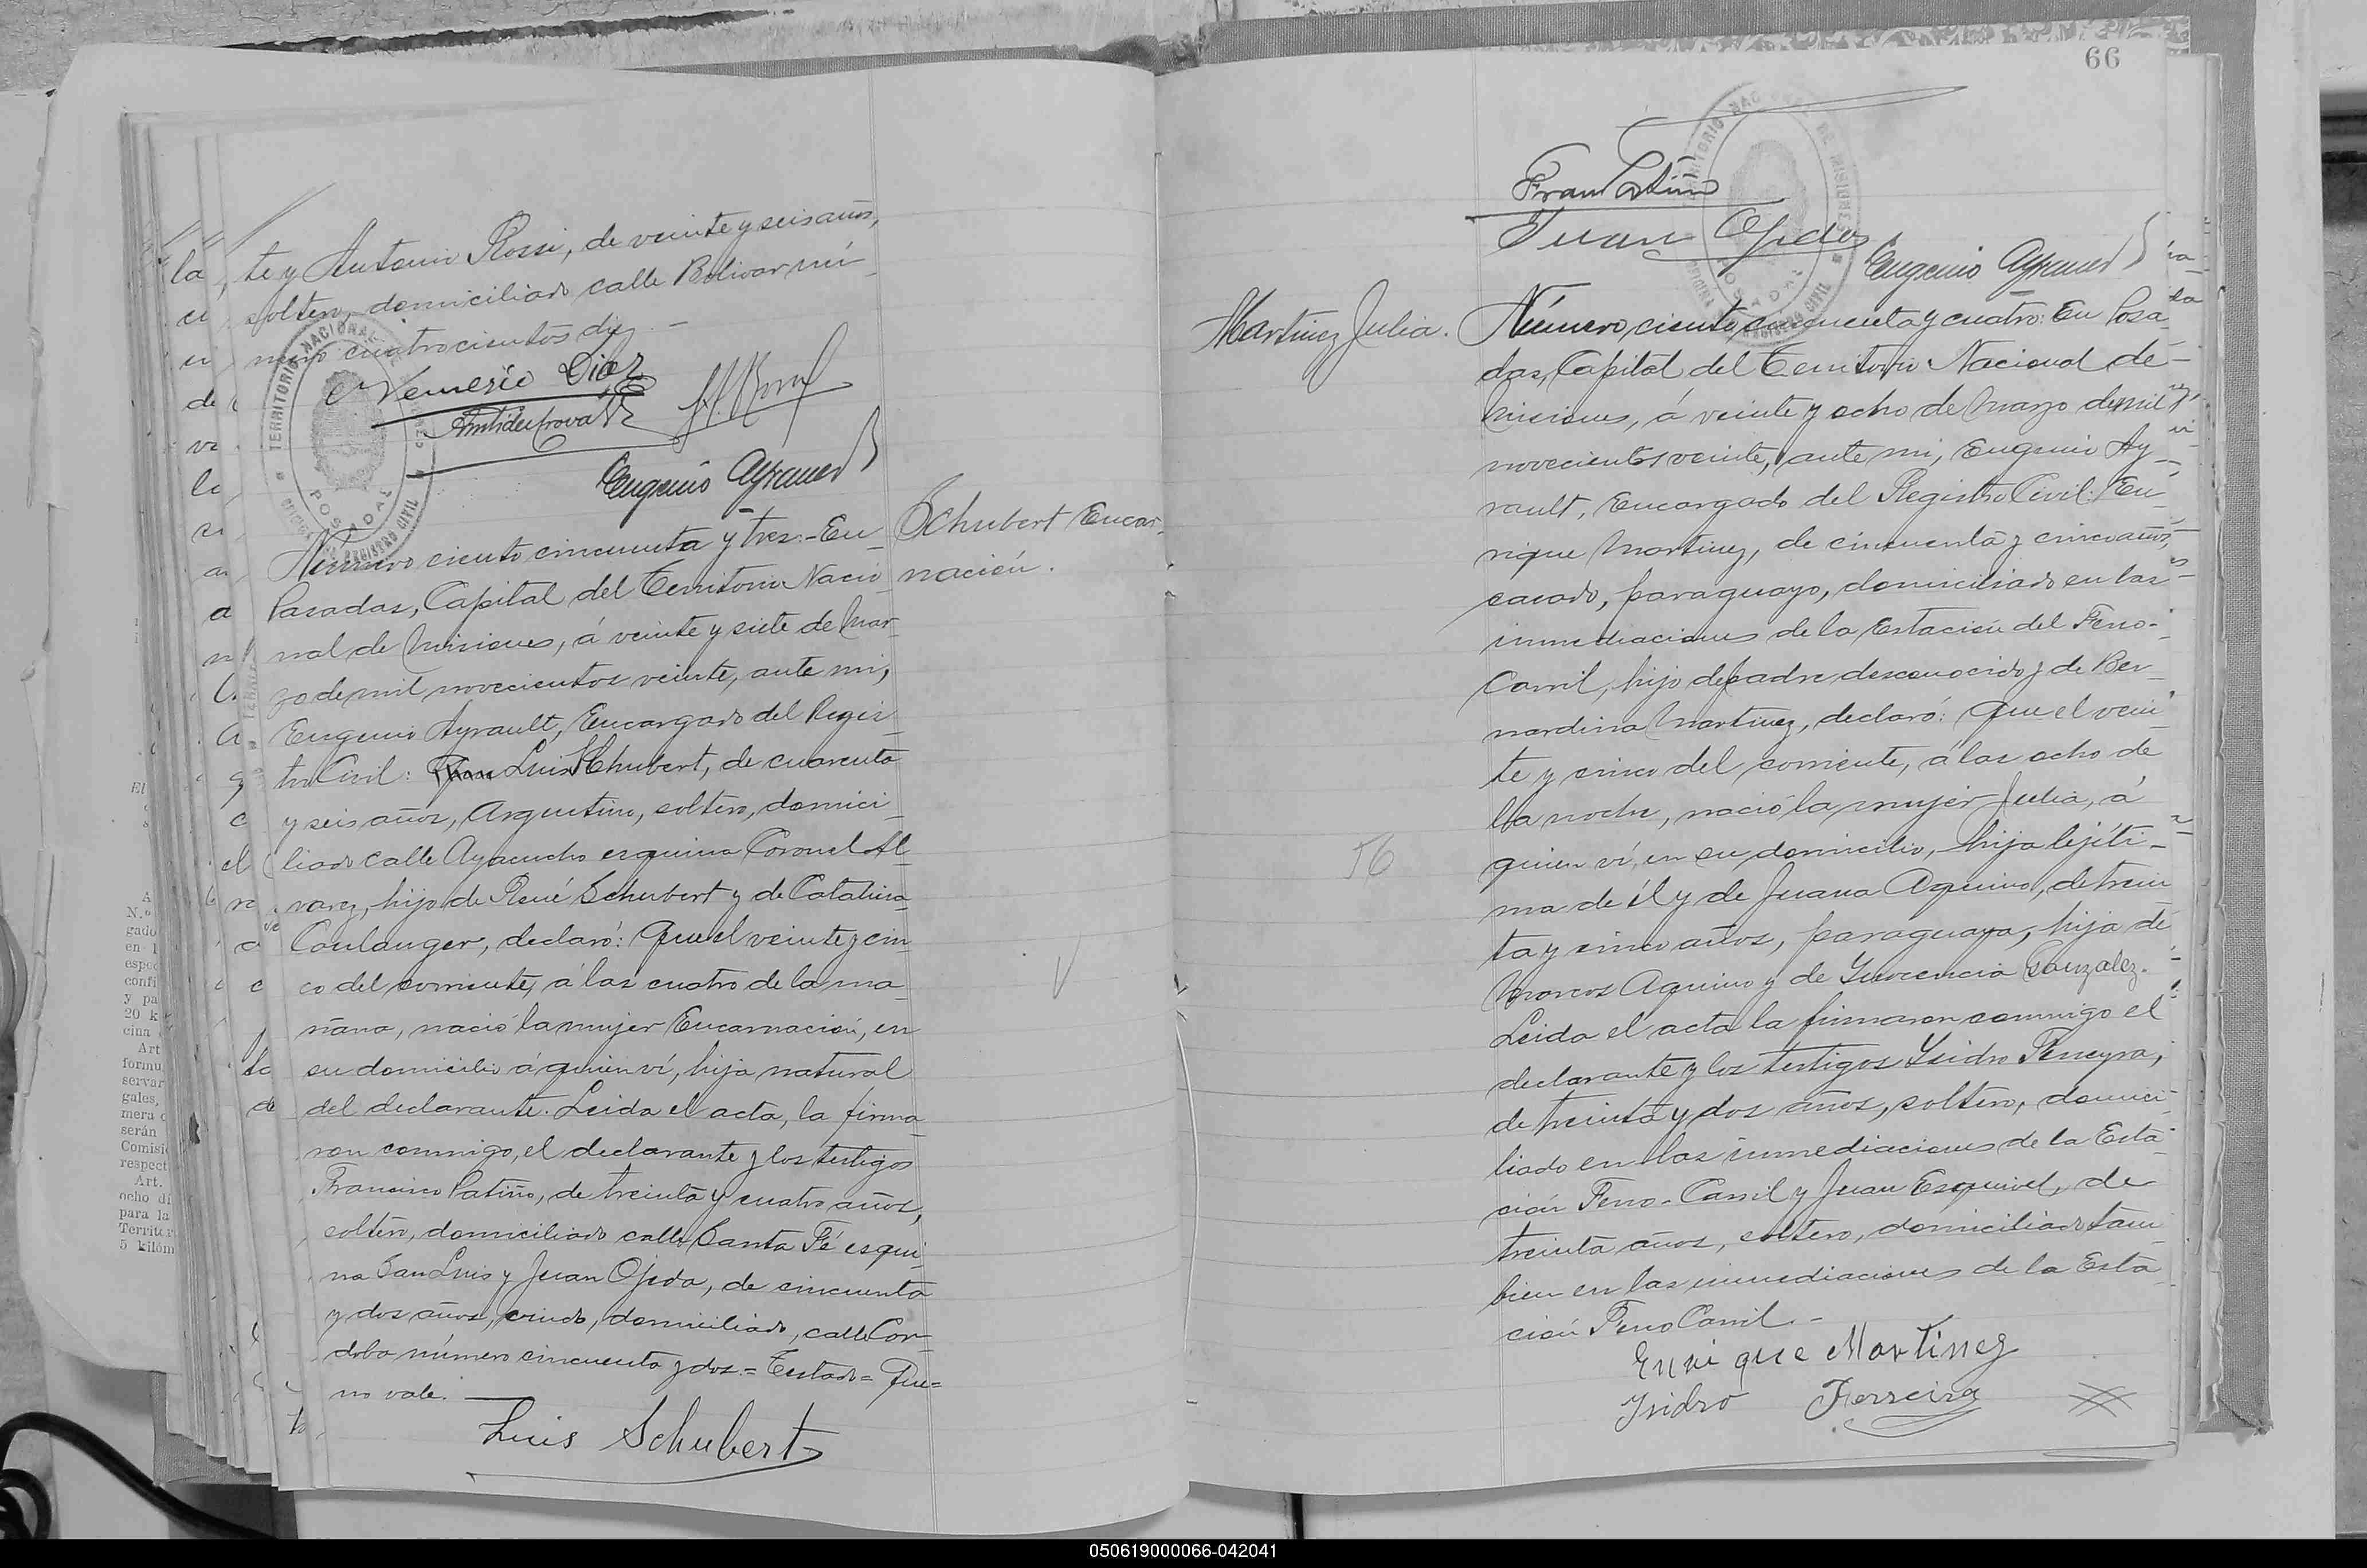 te y Antonio Rossi, de veinte y seis años,
soltero, domiciliado calle Bolivar nú-
mero cuatrocientos diez.-
Nemesio Diaz
Eugenio Ayrault
Número ciento cincuenta y tres:- En
Schubert Encar-
nación.
Posadas, Capital del Territorio Nacio-
nal de Misiones, á veinte y siete de Mar-
zo de mil novecientos veinte, ante mi,
Eugenio Ayrault, Encargado del Regis-
tro Civil: Luis Schubert, de cuarenta
y seis años, Argentino, soltero, domici-
liado calle Ayacucho esquina Coronel Al-
varez, hijo de René Schubert y de Catalina
Coulanger, declaró: Que el veinte y cin-
co del corriente, á las cuatro de la ma-
ñana, nació la mujer Encarnación, en
su domicilio á quien ví, hija natural
del declarante. Leida el acta, la firma-
ron conmigo, el declarante y los testigos
Francisco Patiño, de treinta y cuatro años,
soltero, domiciliado calle Santa Fé esqui-
na San Luis y Juan Ojeda, de cincuenta
y dos años, viudo, domiciliado, calle Cor-
doba número cincuenta y dos.= Testado= Que=
no vale.
Luis Schubert
66
Fran Patiño
Juan Ojeda
Eugenio Ayrault
Martinez Julia.
Número ciento cincuenta y cuatro: En Posa-
das, Capital del Territorio Nacional de
Misiones, á veinte y ocho de Marzo de mil
novecientos veinte, ante mi, Eugenio Ay-
rault, Encargado del Registro Civil: En-
rique Martinez, de cincuenta y cinco años,
casado, paraguayo, domiciliado en las
inmediaciones de la Estación del Ferro-
Carril, hijo de padre desconocido y de Ber-
nardina Martinez, declaró: Que el vein-
te y cinco del corriente, á las ocho de
la noche, nació la mujer Julia, á
quien ví, en su domicilio, hija lejíti-
ma de él y de Juana Aquino, de trein-
ta y cinco años, paraguaya, hija de
Marcos Aquino y de Inocencia Gonzalez.
Leida el acta la firmaron conmigo el
declarante y los testigos Isidro Ferreyra,
de treinta y dos años, soltero, domici-
liado en las inmediaciones de la Esta-
ción Ferro-Carril y Juan Esquivel, de
treinta años, soltero, domiciliado tam-
bien en las inmediaciones de la Esta-
ción Ferro Carril.-
56
Enrique Martinez
Isidro Ferreira
TERRITORIO NACIONAL DE MISIONES
POSADAS
REGISTRO CIVIL
050619000066-042041